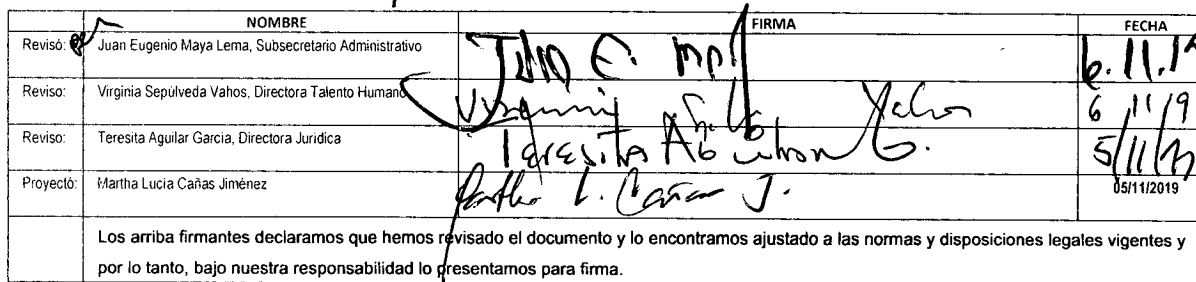 NOMBRE FIRMA FECHA
Revisó: Juan Eugenio Maya Lema, Subsecretario Administrativo 6.11.19
Reviso: Virginia Sepúlveda Vahos, Directora Talento Humano Virginia Vahos 6/11/19
Reviso: Teresita Aguilar Garcia, Directora Juridica Teresita Aguilar G. 5/11/19
Proyectó: Martha Lucia Cañas Jiménez Martha L. Cañas J. 05/11/2019
Los arriba firmantes declaramos que hemos revisado el documento y lo encontramos ajustado a las normas y disposiciones legales vigentes y
por lo tanto, bajo nuestra responsabilidad lo presentamos para firma.